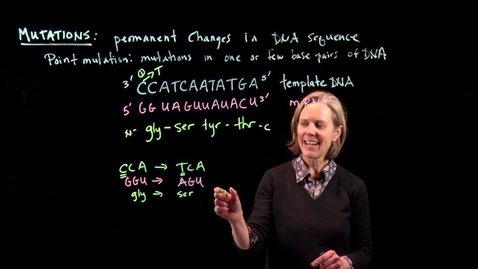 MUTATIONS: permanent changes in DNA sequence
Point mutation: mutations in one or few base pairs of DNA
① T
3' CCATCAATATGA 5' template DNA
5' GGUAGUUAUACU 3'
N- gly - ser tyr - thr - c
CCA → TCA
GGU → AGU
gly → ser